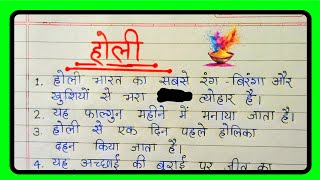 होली
1. होली भारत का सबसे रंग-बिरंगा और
खुशियों से भरा त्योहार है।
2. यह फाल्गुन महीने में मनाया जाता है।
3. होली से एक दिन पहले होलिका
दहन किया जाता है।
4. यह अच्छाई की बुराई पर जीत का